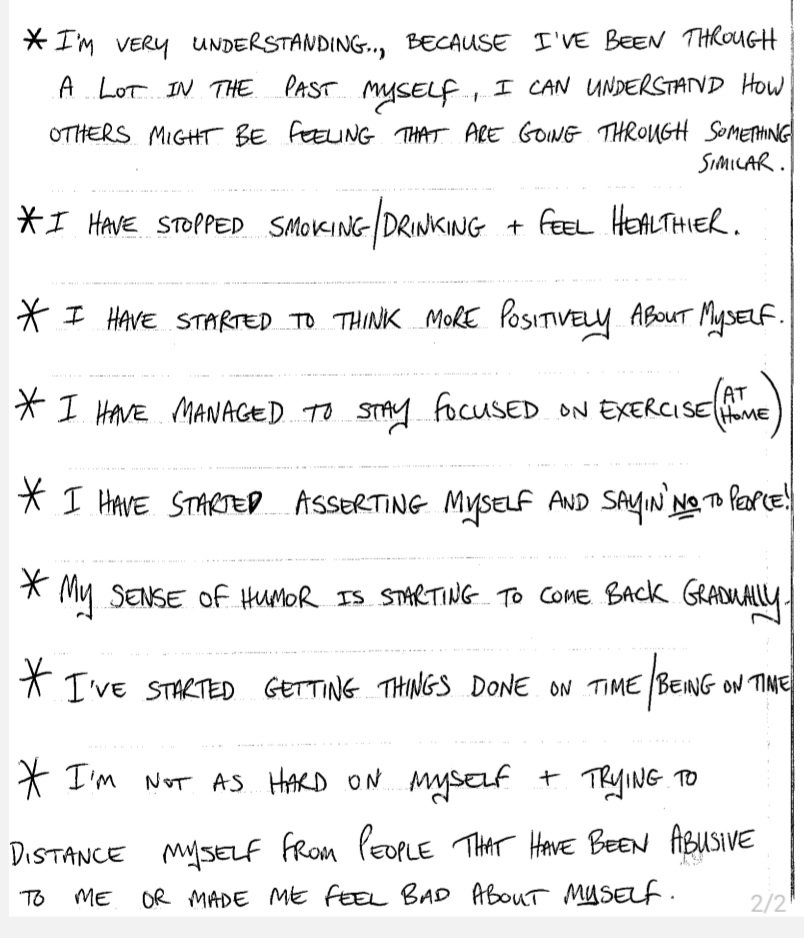 * I'M VERY UNDERSTANDING.., BECAUSE I'VE BEEN THROUGH
A LOT IN THE PAST MYSELF, I CAN UNDERSTAND HOW
OTHERS MIGHT BE FEELING THAT ARE GOING THROUGH SOMETHING
SIMILAR.
* I HAVE STOPPED SMOKING/DRINKING + FEEL HEALTHIER.
* I HAVE STARTED TO THINK MORE POSITIVELY ABOUT MYSELF.
* I HAVE MANAGED TO STAY FOCUSED ON EXERCISE (AT HOME)
* I HAVE STARTED ASSERTING MYSELF AND SAYIN' NO TO PEOPLE!
* MY SENSE OF HUMOR IS STARTING TO COME BACK GRADUALLY.
* I'VE STARTED GETTING THINGS DONE ON TIME/BEING ON TIME
* I'M NOT AS HARD ON MYSELF + TRYING TO
DISTANCE MYSELF FROM PEOPLE THAT HAVE BEEN ABUSIVE
TO ME OR MADE ME FEEL BAD ABOUT MYSELF.
2/2